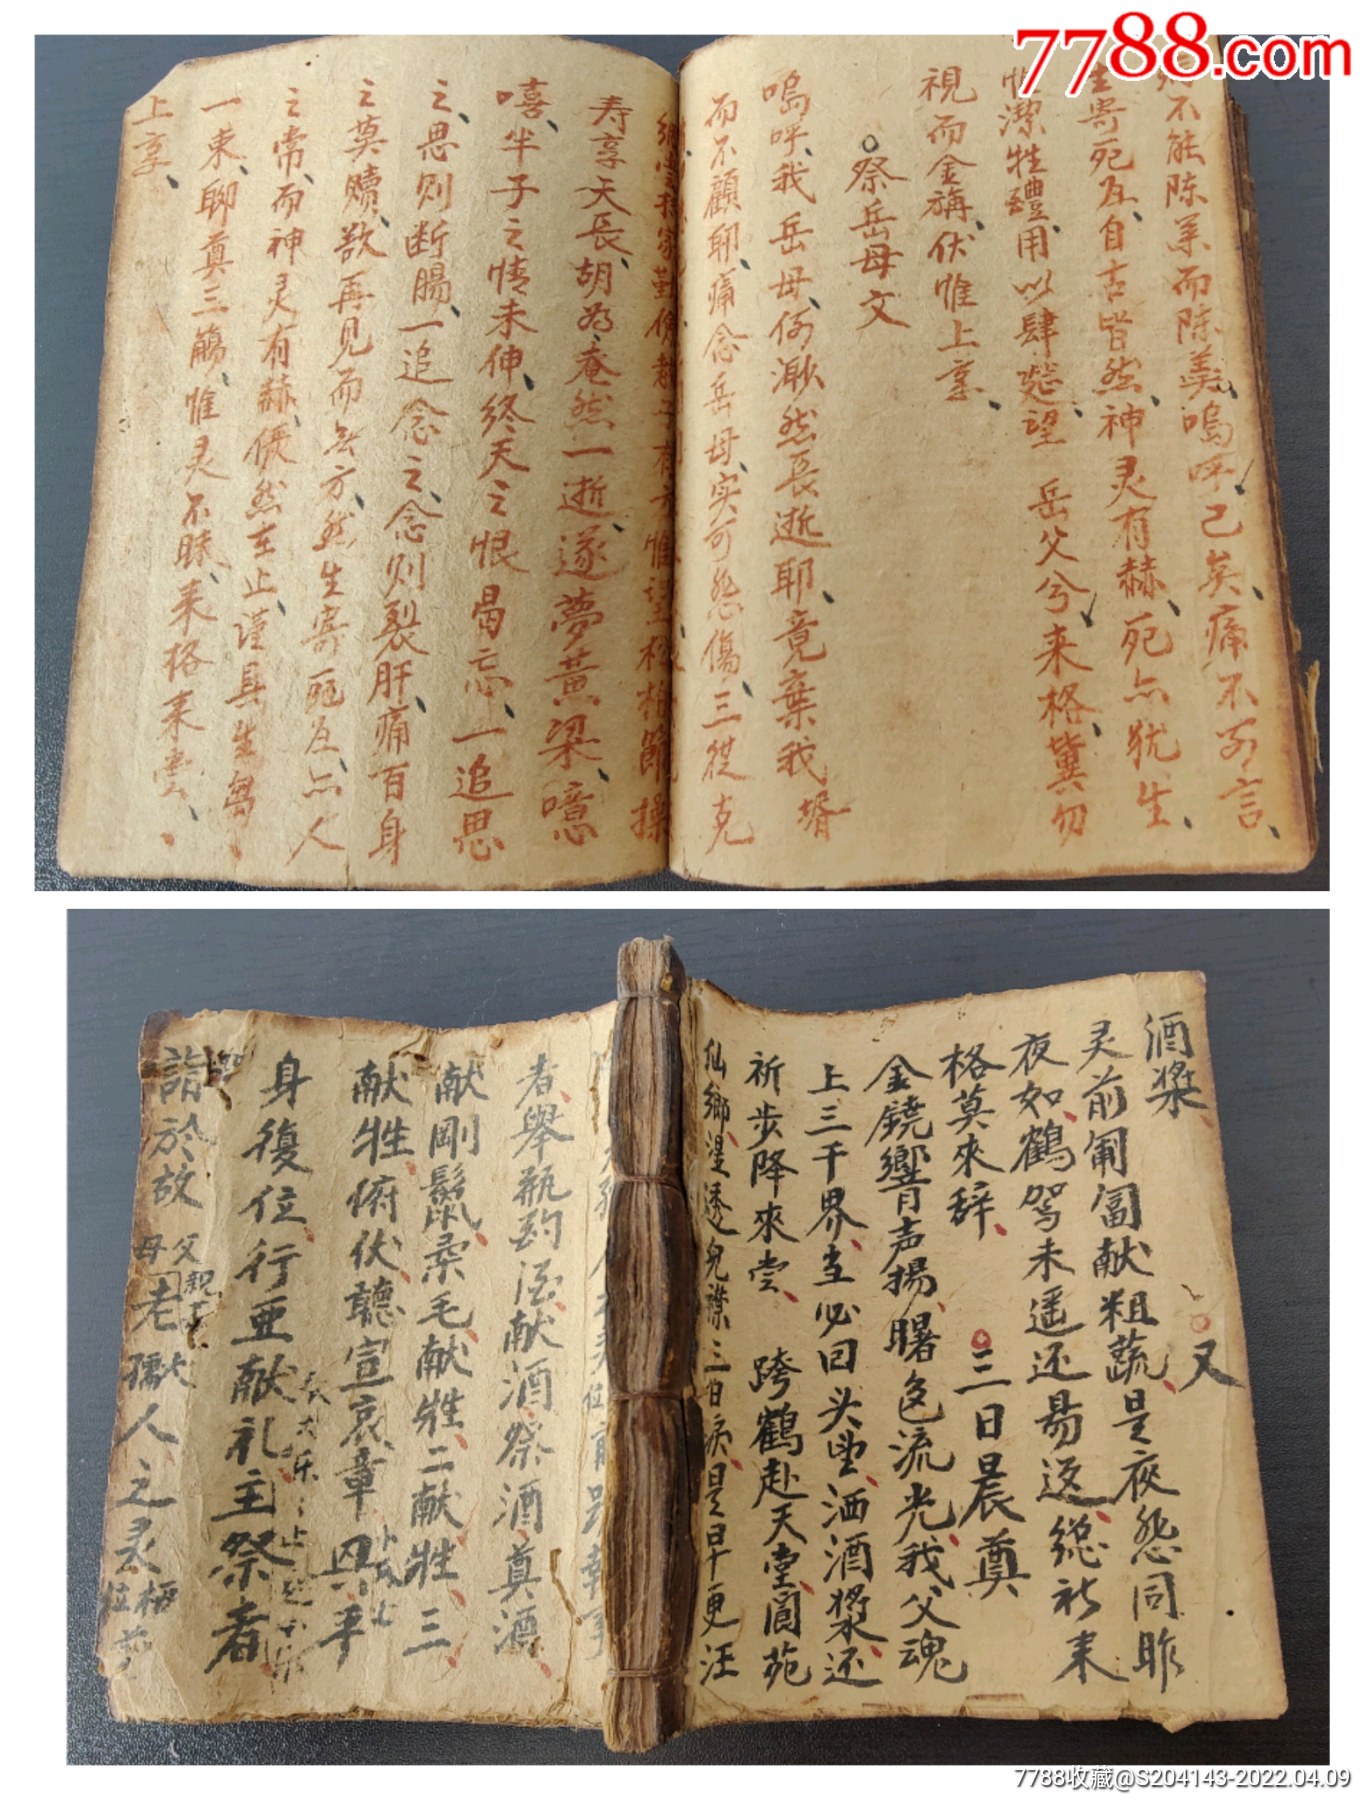 7788.com
不能陈羊而陈羹呜呼已矣痛不可言
生寄死�归自古皆然神灵有赫死亦犹生
惟潔牲醴用以肆筵望岳父兮来格冀勿
視而金旃伏惟上享
祭岳母文
嗚呼我岳母何渺然長逝耶竟棄我壻
而不顧耶痛念岳母实可悲傷三從克
寿享天長胡为奄然一逝遂夢黃梁噫
嘻半子之情未伸終天之恨曷忘一追思
之思则断腸一追念之念则裂肝痛百身
之莫贖欲再見而无方然生寄死归亦人
之常而神灵有赫儼然在止谨具生芻
一束聊奠三觴惟灵不昧来格来尝
上享
又
酒漿
灵前匍匐献粗蔬是夜悲同昨
夜如鶴驾未遥还易返総祈来
格莫來辞
三日晨奠
金鐃響声揚曙色流光我父魂
上三千界当必回头望洒酒漿还
祈步降來尝跨鶴赴天堂閬苑
仙鄉湿透兒襟三日痰是早更汪
者舉瓶酌酒献酒祭酒奠酒
献剛鬣柔毛献牲二献牲三
献牲俯伏聽宣哀章畢平
身復位行亚献礼主祭者
詣於故父母親老孺人之灵位柩前
7788收藏@S204143-2022.04.09